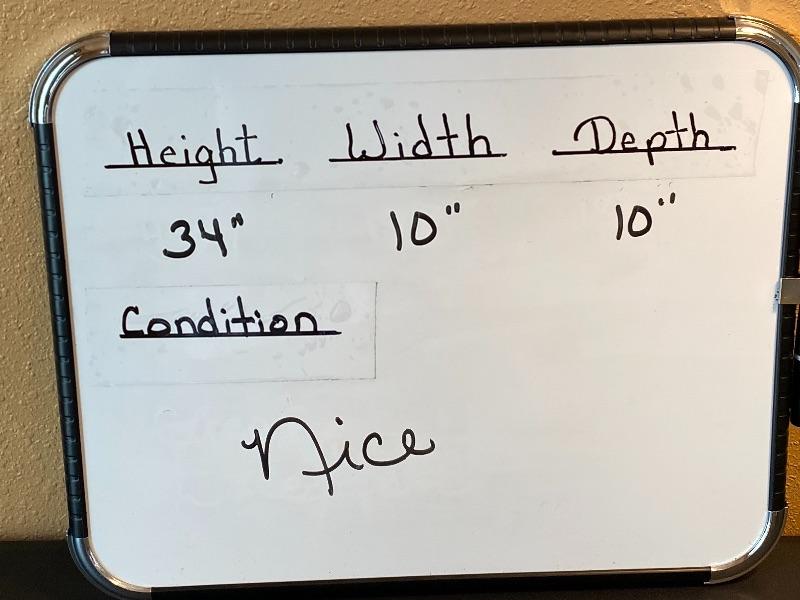 Height Width Depth
34" 10" 10"
Condition
Nice